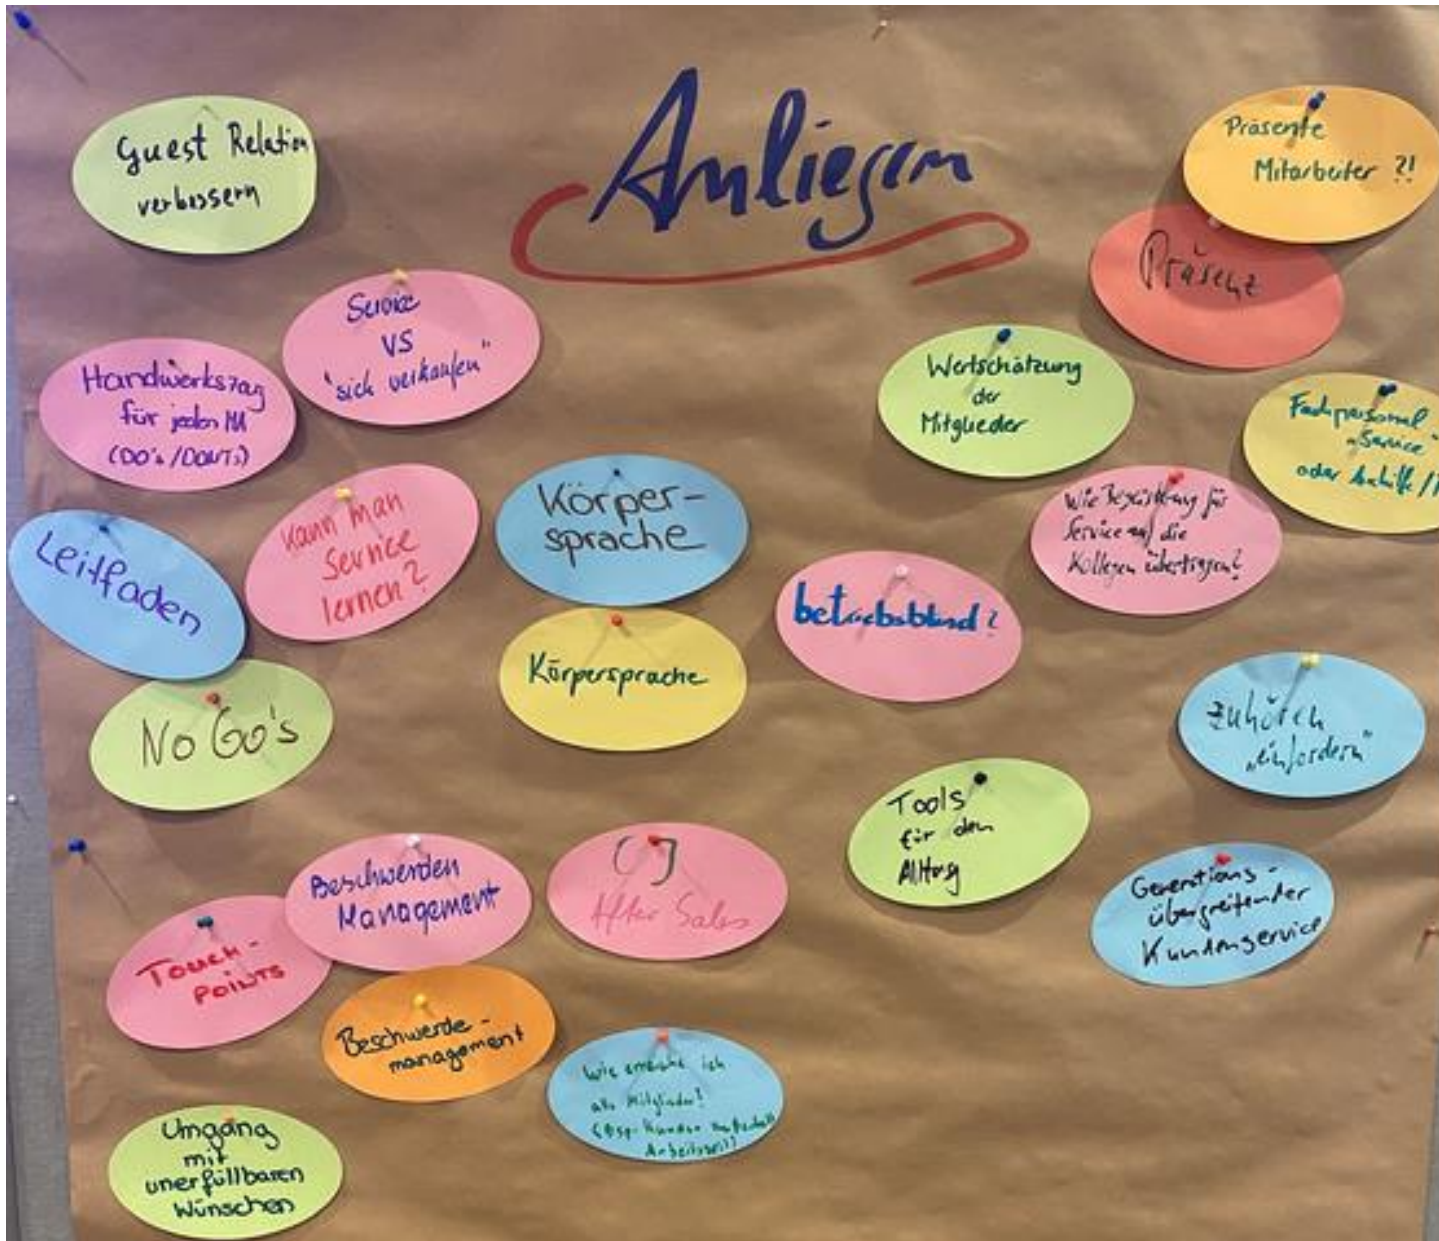 Anliegen
Guest Relation
verbessern
Präsente
Mitarbeiter ?!
Präsenz
Service
VS
"sich verkaufen"
Handwerkszeug
für jeden MA
(DO's/DONTs)
Wertschätzung
der
Mitglieder
Fachpersonal
„Service"
oder
Leitfaden
Kann man
Service
lernen?
Körper-
sprache
Wie Begeisterung für
Service auf die
Kollegen übertragen?
betriebsblind?
Körpersprache
No Go's
Zuhören
„einfordern"
Tools
für den
Alltag
Beschwerden
Management
After Sales
Generations-
übergreifender
Kundenservice
Touch-
Points
Beschwerde-
management
Wie erreiche ich
alle Mitglieder?
Arbeitszeit)
Umgang
mit
unerfüllbaren
Wünschen